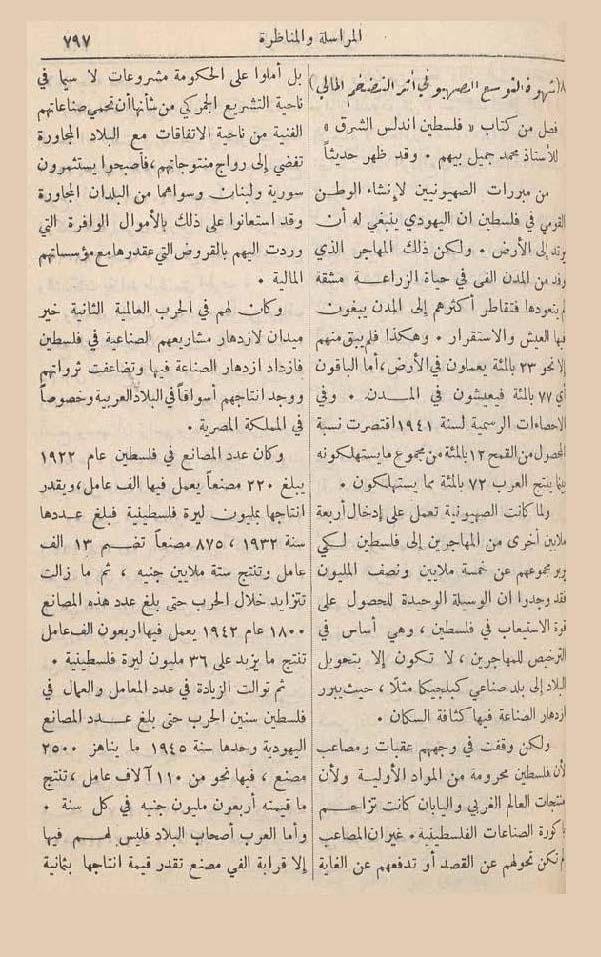 المراسلة والمناظرة
٧٩٧
٨(شهوة التوسع الصهيوني أثر التضخم المالي)
فصل من كتاب « فلسطين اندلس الشرق »
للأستاذ محمد جميل بيهم . وقد ظهر حديثاً
من مبررات الصهيونيين لإنشاء الوطن
القومي في فلسطين ان اليهودي ينبغي له أن
يرتد إلى الأرض . ولكن ذلك المهاجر الذي
وفد من المدن الفى في حياة الزراعة مشقة
لم يتعودها فتقاطر أكثرهم إلى المدن يبغون
فيها العيش والاستقرار . وهكذا فلم يبق منهم
إلا نحو ٢٣ بالمئة يعملون في الأرض، أما الباقون
أي ٧٧ بالمئة فيعيشون في المدن . وفي
الاحصاءات الرسمية لسنة ١٩٤١ اقتصرت نسبة
المحصول من القمح ١٢ بالمئة من مجموع ما يستهلكونه
بينما ينتج العرب ٧٢ بالمئة مما يستهلكون .
ولما كانت الصهيونية تعمل على إدخال أربعة
ملايين أخرى من المهاجرين إلى فلسطين لكي
يربو مجموعهم عن خمسة ملايين ونصف المليون
فقد وجدرا ان الوسيلة الوحيدة للحصول على
قوة الاستيعاب في فلسطين ، وهي أساس في
الترخيص للمهاجرين ، لا تكون إلا بتحويل
البلاد إلى بلد صناعي كبلجيكا مثلاً ، حيث يبرر
ازدهار الصناعة فيها كثافة السكان .
ولكن وقفت في وجههم عقبات ومصاعب
لأن فلسطين محرومة من المواد الأولية ولأن
منتجات العالم الغربي واليابان كانت تزاحم
باكورة الصناعات الفلسطينية . غير ان المصاعب
لم تكن تحولهم عن القصد أو تدفعهم عن الغاية
بل أملوا على الحكومة مشروعات لا سيما في
ناحية التشريع الجمركي من شأنها أن تحمي صناعاتهم
الفنية من ناحية الاتفاقات مع البلاد المجاورة
تفضي إلى رواج منتوجاتهم، فأصبحوا يستثمرون
سورية ولبنان وسواهما من البلدان المجاورة
وقد استعانوا على ذلك بالأموال الوافرة التي
وردت اليهم بالقروض التي عقدرها مع مؤسساتهم
المالية .
وكان لهم في الحرب العالمية الثانية خير
ميدان لازدهار مشاريعهم الصناعية في فلسطين
فازداد ازدهار الصناعة فيها وتضاعفت ثرواتهم
ووجد انتاجهم أسواقاً في البلاد العربية وخصوصاً
في المملكة المصرية .
وكان عدد المصانع في فلسطين عام ١٩٢٢
يبلغ ٢٢٠ مصنعاً يعمل فيها الف عامل ، ويقدر
انتاجها بمليون ليرة فلسطينية فبلغ عددها
سنة ١٩٣٢ ، ٨٧٥ مصنعاً تضم ١٣ الف
عامل وتنتج ستة ملايين جنيه ، ثم ما زالت
تتزايد خلال الحرب حتى بلغ عدد هذه المصانع
١٨٠٠ عام ١٩٤٢ يعمل فيها اربعون الف عامل
تنتج ما يزيد على ٣٦ مليون ليرة فلسطينية .
ثم توالت الزيادة في عدد المعامل والعمال في
فلسطين سنين الحرب حتى بلغ عدد المصانع
اليهودية وحدها سنة ١٩٤٥ ما يناهز ٢٥٠٠
مصنع ، فيها نحو من ١١٠ آلاف عامل ، تنتج
ما قيمته أربعون مليون جنيه في كل سنة .
وأما العرب أصحاب البلاد فليس لهم فيها
إلا قرابة الفي مصنع تقدر قيمة انتاجها بثمانية